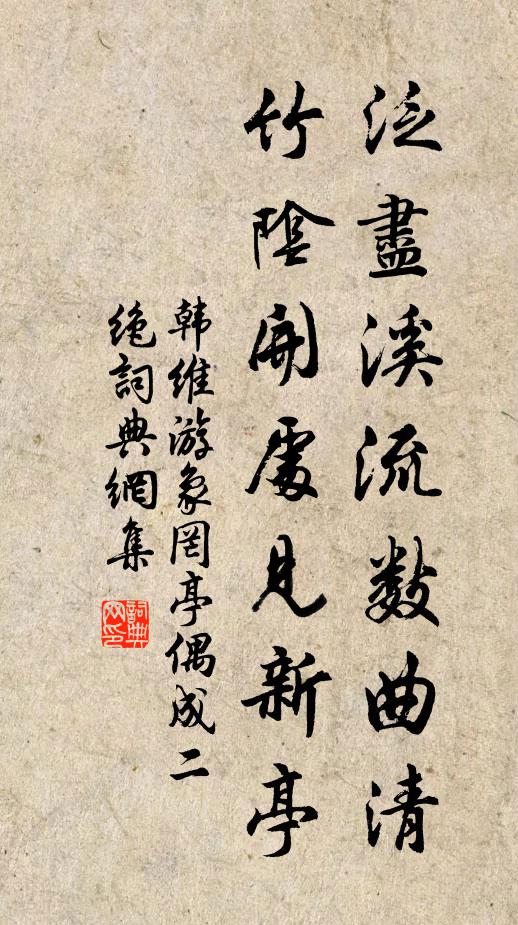 泛盡溪流數曲清
竹陰開處見新亭
韩維游象罔亭偶成二
绝詞典網集
詞典網印